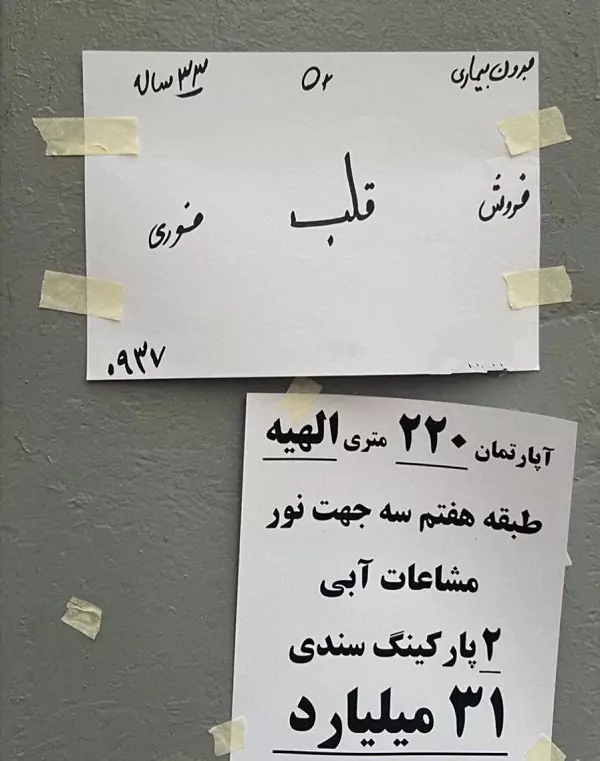 بدون بیماری O+ ۳۳ ساله
فروش قلب فوری
۰۹۳۷
آپارتمان ۲۲۰ متری الهیه
طبقه هفتم سه جهت نور
مشاعات آبی
۲ پارکینگ سندی
۳۱ میلیارد